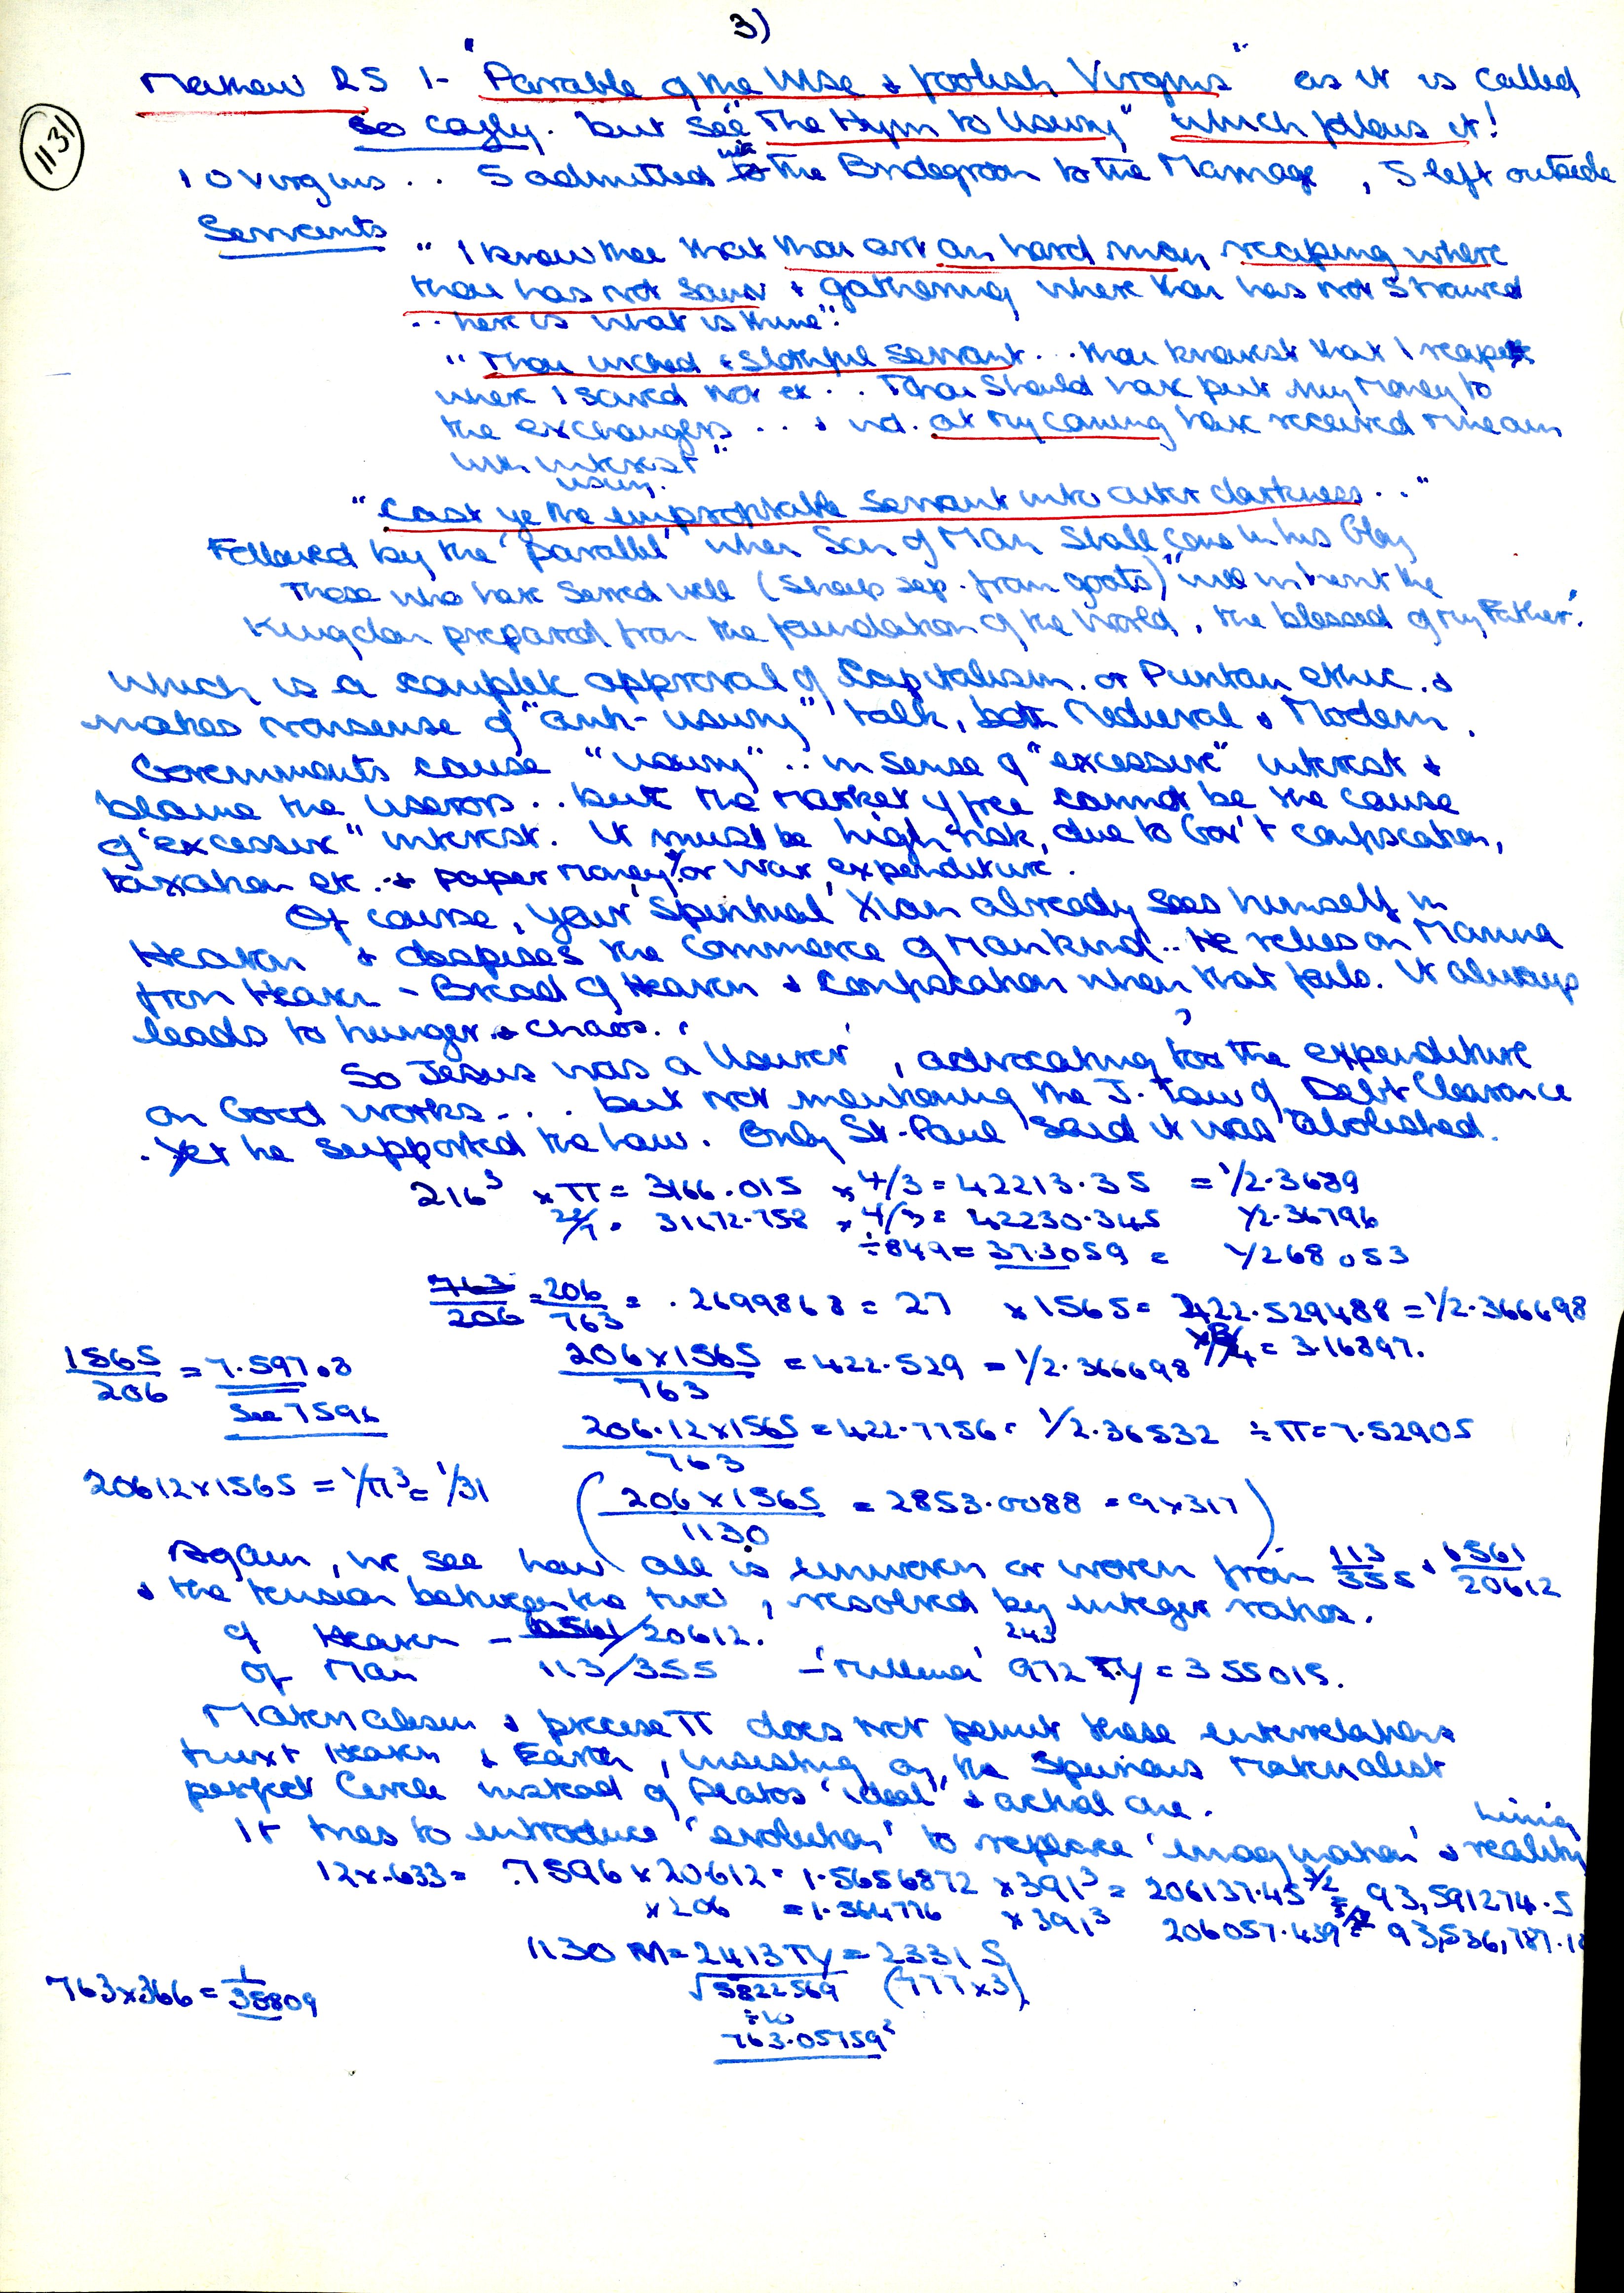 3)
1131
Mathew 25 1- "Parable of the Wise & foolish Virgins" as it is called
so cagly. but see "The Hymn to Usury" which follows it!
10 Virgins .. 5 admitted with the Bridegroom to the Marriage, 5 left outside
Servants
"I knew thee that thou art an hard man, reaping where
thou has not sown & gathering where thou has not strawed
.. here is what is thine".
"Thou wicked & slothful servant .. thou knewest that I reaped
where I sowed not etc .. Thou should have put my money to
the exchangers .. & at my coming have received mine own
with interest".
usury.
"Cast ye the unprofitable servant into outer darkness .."
Followed by the 'parallel' "when Son of Man shall come in his Glory
Those who have served well (sheep sep. from goats) "will inherit the
Kingdom prepared from the foundation of the World, the blessed of my Father".
Which is a complete approval of Capitalism. or Puritan ethic. &
makes nonsense of "anti-usury" talk, both Medieval & Modern.
Governments cause "usury" .. in sense of "excessive" interest &
blame the userors .. but the market if free cannot be the cause
of "excessive" interest. It must be high risk, due to Gov't confiscation,
taxation etc .. & paper money &/or war expenditure.
Of course, your 'Spiritual' Xian already sees himself in
Heaven & despises the Commerce of Mankind .. He relies on Manna
from Heaven - Bread of Heaven & Confiscation when that fails. It always
leads to hunger & chaos.
So Jesus was a 'Usurer', advocating too the expenditure
on Good works .... but not mentioning the J. Law of Debt Clearance
. Yet he supported the Law. Only St. Paul said it was abolished.
216³ × π = 3166.015 × 4/3 = 42213.35 = 1/2.3689
22/7 = 31672.758 × 4/3 = 42230.345 1/2.36796
÷ 849 = 37.3059 = 1/268.053
763/206 = 206/763 = .2699868 = 27 × 1565 = 422.529488 = 1/2.366698
1565/206 = 7.597.8
206×1565/763 = 422.529 = 1/2.366698 = 3.16897.
See 7596
206.12×1565/763 = 422.7756 = 1/2.36532 ÷ π = 7.52905
20612×1565 = 1/π³ = 1/31
(206×1565/1130 = 2853.0088 = 9×317)
Again, we see how all is unwoven or woven from 113/355 & 6561/20612
& the tension between the two, resolved by integer ratios.
of Heaven - 6561/20612.
243
Of Man 113/355 - 'Millennia' 972 TY = 355015.
Materialism & precise π does not permit these interrelations
twixt Heaven & Earth, insisting on the Spurious Materialist
perfect Circle instead of Platos 'ideal' & actual one.
It tries to introduce 'evolution' to replace 'imagination' & living reality
12×.633 = .7596 × 20.612 = 1.5656872 × 391³ = 206137.45 3/2 = 93,591274.5
×206 = 1.564776 × 391³ 206057.439 3/2 = 93,536,787.18
1130 M = 2413 TY = 2331 S
√5822569 (777×3)
÷10
763.05759²
763×366 = 1/35809